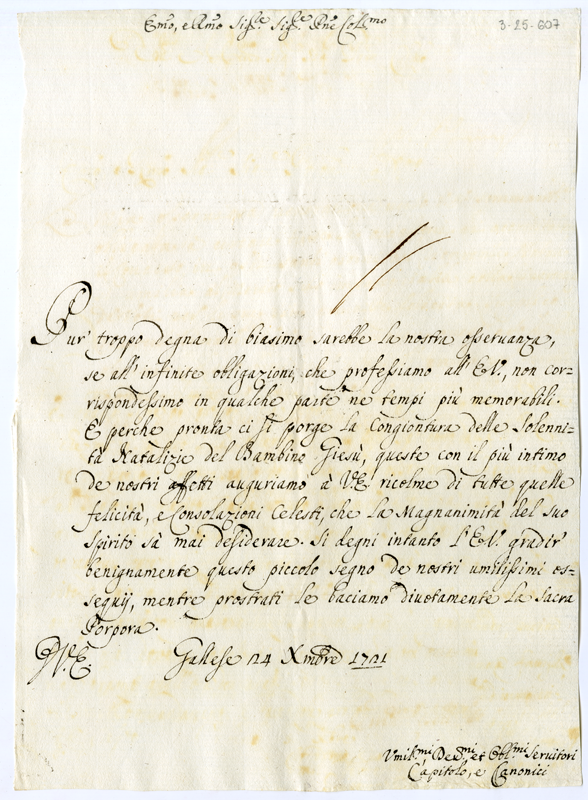 Emo, e Rmo Sigre. Sigre. Pne Collmo
3-25-607
Pur' troppo degna di biasimo sarebbe la nostra osseruanza,
se all'infinite obligazioni, che professiamo all'E.V., non cor=
rispondessimo in qualche parte ne tempi più memorabili.
E perche pronta ci si porge la Congiontura delle Solenni=
tà Natalizie del Bambino Giesù, queste con il più intimo
de nostri affetti auguriamo à V.E. ricolme di tutte quelle
felicità, e Consolazioni Celesti, che la Magnanimità del suo
spirito sà mai desiderare. Si degni intanto l'E.V. gradir'
benignamente questo piccolo segno de nostri umilissimi os=
sequij, mentre prostrati le baciamo diuotamente la Sacra
Porpora.
D.V.E. Gallese 14 Xmbre 1721
Vmilmi Deumi et Oblmi Seruitori
Capitolo, e Canonici